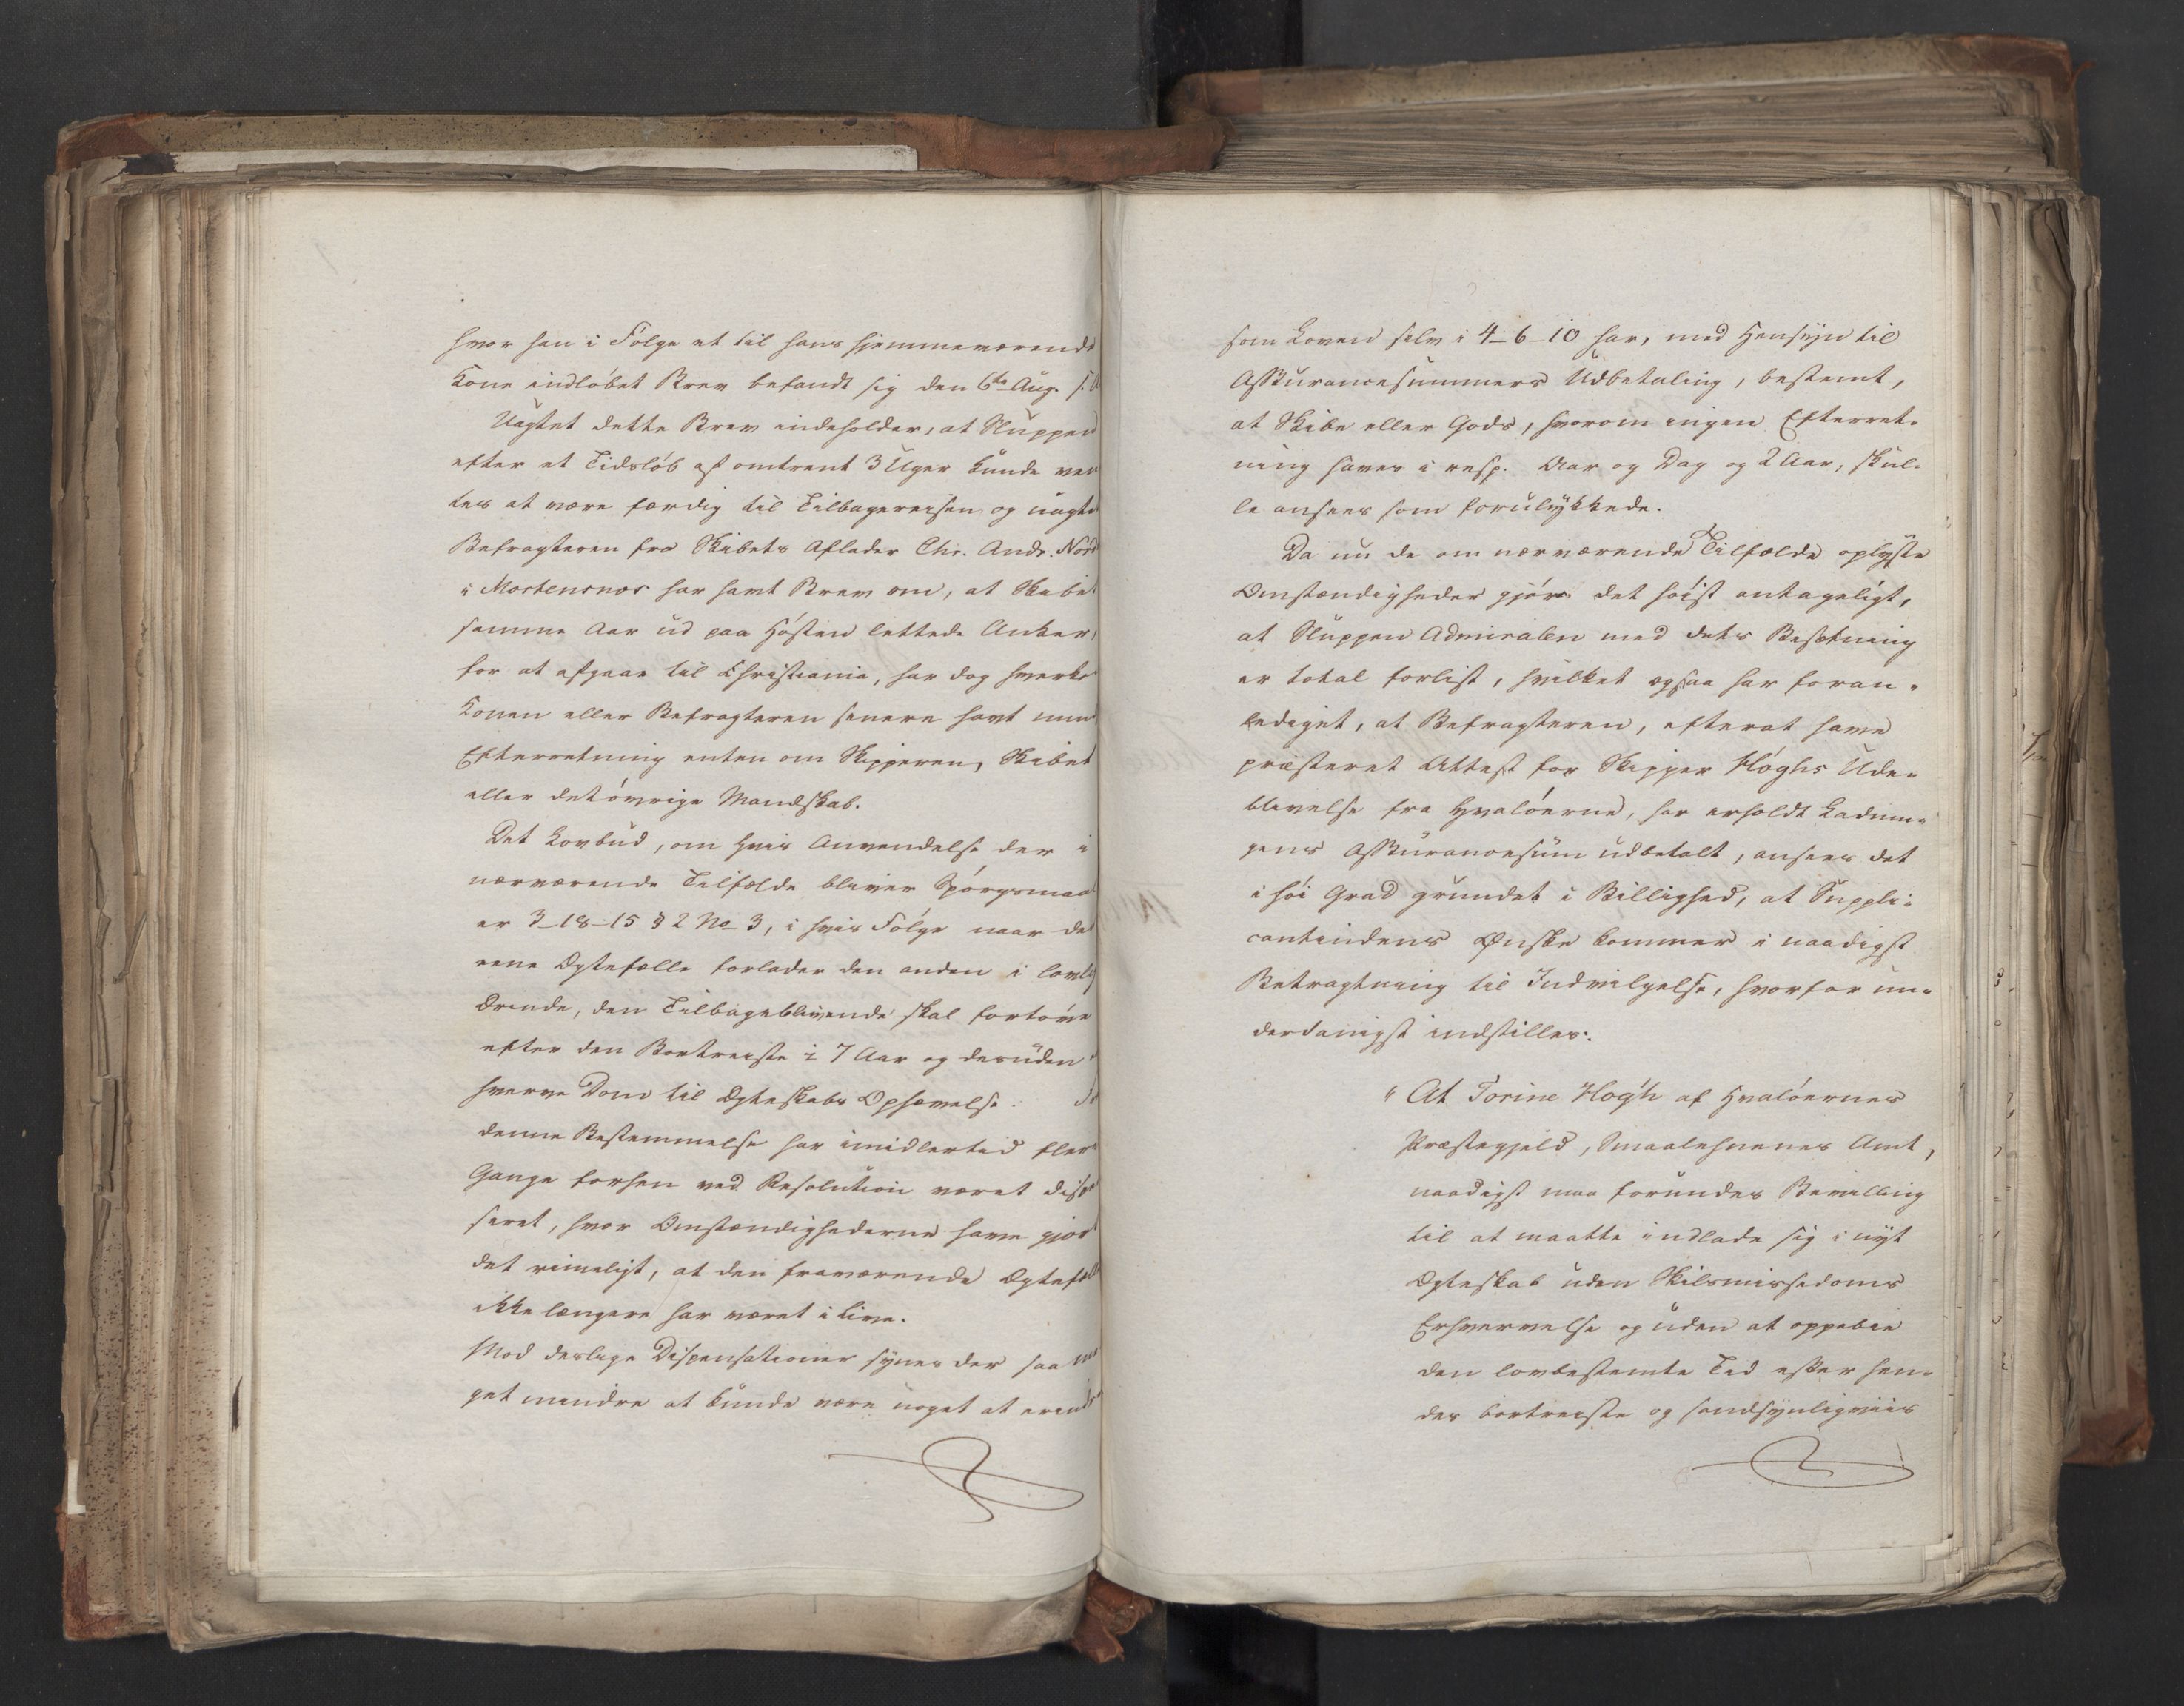 hvor han i Følge et til hans hjemmeværende
Kone indløbet Brev befandt sig den 6te Aug. s. A
Uagtet dette Brev indeholder, at Sluppen
efter et Tidsløb af omtrent 3 Uger kunde ven
tes at være færdig til Tilbagereisen og uagtet
Befragteren fra Skibets Aflader Chr. Andr. Nord
i Mortensnæs har havt Brev om, at Skibet
samme Aar ud paa Høsten lettede Anker,
for at afgaae til Christiania, har dog hverken
Konen eller Befragteren senere havt
Efterretning enten om Skipperen, Skibet
eller det øvrige Mandskab.
Det Lovbud, om hvis Anvendelse der i
nærværende Tilfælde bliver Spørgsmaal
er 3-18-15 § 2 No 3, i hvis Følge naar den
eene Ægtefælle forlader den anden i lovlig
Ærinde, den Tilbageblivende skal fortøve
efter den Bortreiste i 7 Aar og desuden
hverve Dom til Ægteskabs Ophævelse.
denne Bestemmelse har imidlertid flere
Gange forhen ved Resolution været dispen
seret, hvor Omstændighederne have gjort
det rimeligt, at den fraværende Ægtefælle
ikke længere har været i Live.
Mod deslige Dispensationer synes der saa me
get mindre at kunde være noget at erindre
som Loven selv i 4-6-10 har, med Hensyn til
Assurancesummers Udbetaling, bestemt,
at Skibe eller Gods, hvorom ingen Efterret-
ning haves i resp. Aar og Dag og 2 Aar, skul-
le ansees som forulykkede.
Da nu de om nærværende Tilfælde oplyste
Omstændigheder gjøre det høist antageligt,
at Sluppen Admiralen med dets Besætning
er total forlist, hvilket ogsaa har foran-
lediget, at Befragteren, efterat have
præsteret Attest for Skipper Høghs Ude-
blivelse fra Hvaløerne, har erholdt Ladnin-
gens Assurancesum udbetalt, ansees det
i høi Grad grundet i Billighed, at Suppli-
cantindens Ønske kommer i naadigst
Betragtning til Indvilgelse, hvorfor un-
derdanigst indstilles:
" At Torine Høgh af Hvaløernes
Præstegjeld, Smaalehnenes Amt,
naadigst maa forundes Bevilling
til at maatte indlade sig i nyt
Ægteskab uden Skilsmissedoms
Erhvervelse og uden at oppebie
den lovbestemte Tid efter hen-
des bortreiste og sandsynligviis